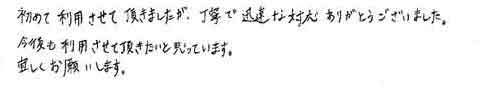 初めて利用させて頂きましたが、丁寧で迅速な対応ありがとうございました。
今後も利用させて頂きたいと思っています。
宜しくお願いします。